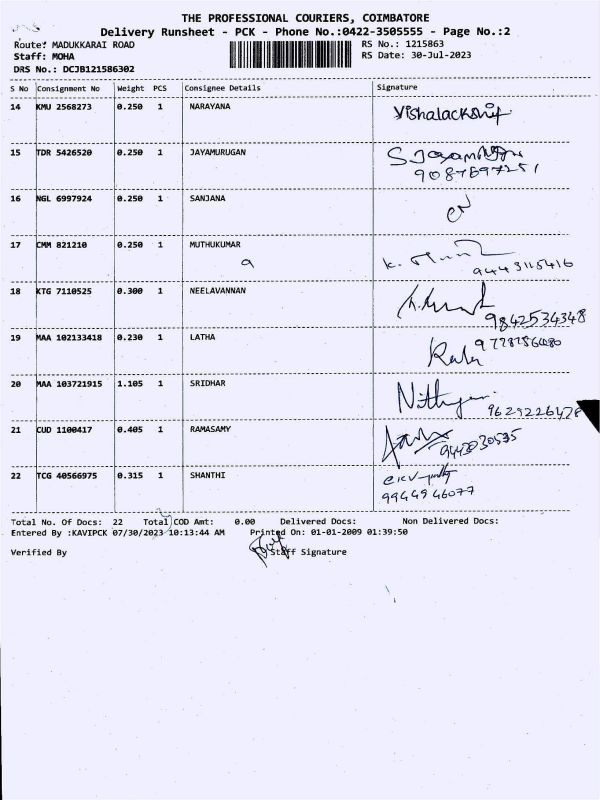 THE PROFESSIONAL COURIERS, COIMBATORE
Delivery Runsheet - PCK - Phone No.:0422-3505555 - Page No.:2
Route: MADUKKARAI ROAD RS No.: 1215863
Staff: MOHA RS Date: 30-Jul-2023
DRS No.: DCJB121586302
S No Consignment No Weight PCS Consignee Details Signature
14 KMU 2568273 0.250 1 NARAYANA Vishalackshi
15 TDR 5426520 0.250 1 JAYAMURUGAN
16 NGL 6997924 0.250 1 SANJANA
17 CMM 821210 0.250 1 MUTHUKUMAR
9443115416
18 KTG 7110525 0.300 1 NEELAVANNAN
9842534348
19 MAA 102133418 0.230 1 LATHA
20 MAA 103721915 1.105 1 SRIDHAR
9629226478
21 CUD 1100417 0.405 1 RAMASAMY
22 TCG 40566975 0.315 1 SHANTHI
9944946077
Total No. Of Docs: 22 Total COD Amt: 0.00 Delivered Docs: Non Delivered Docs:
Entered By :KAVIPCK 07/30/2023 10:13:44 AM Printed On: 01-01-2009 01:39:50
Verified By Staff Signature